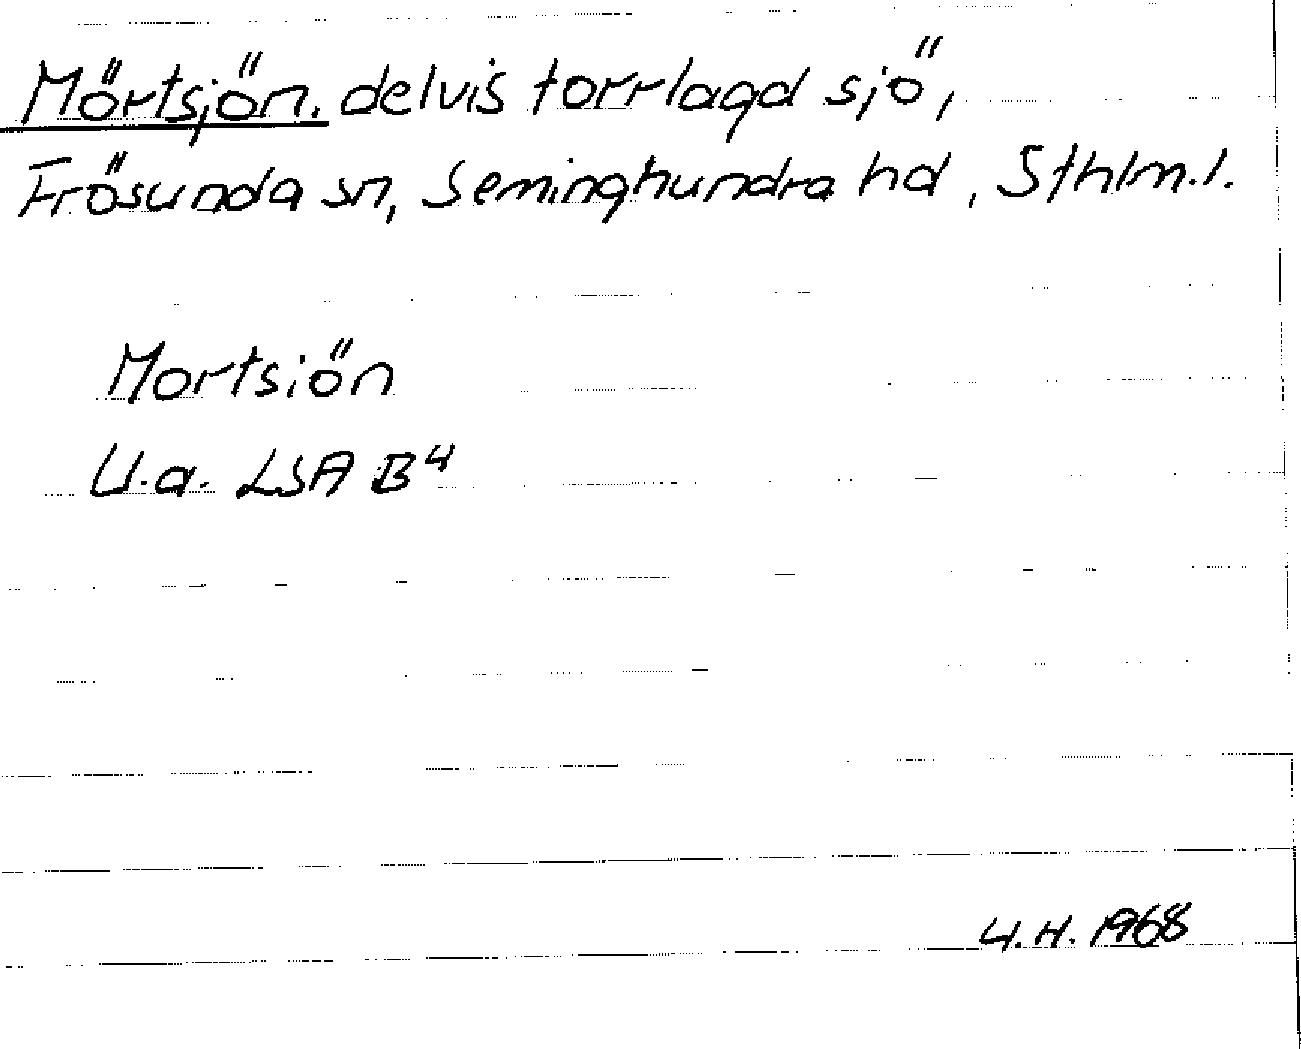 Mörtsjön. delvis torrlagd sjö,
Frösunda sn, Seminghundra hd, Sthlm.l.
Mortsiön
U.a. LSA B4
4.H. 1968